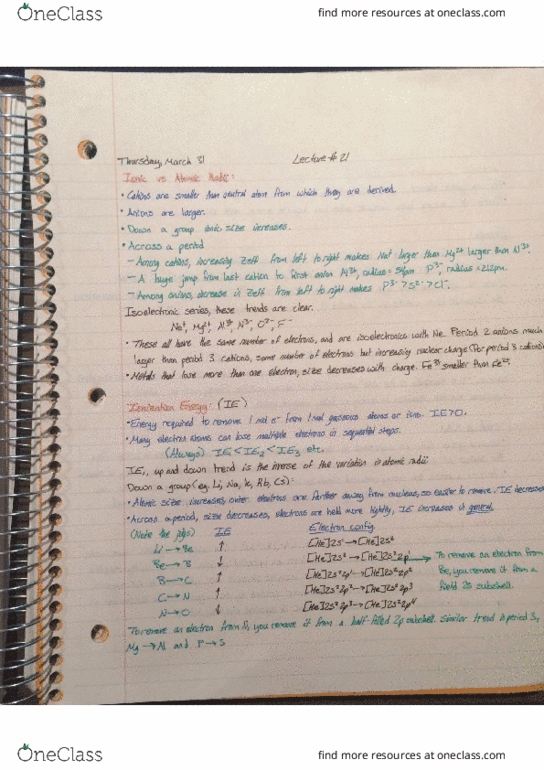 OneClass find more resources at oneclass.com
Thursday, March 31 Lecture # 21
Ionic vs Atomic Radii:
• Cations are smaller than neutral atom from which they are derived.
• Anions are larger.
• Down a group ionic size increases.
• Across a period
– Among cations, increasing Zeff from left to right makes Na+ larger than Mg2+ larger than Al3+.
– A huge jump from last cation to first anion Al3+, radius = 54pm P3-, radius = 212pm.
– Among anions, decrease in Zeff from left to right makes P3- > S2- > Cl-.
Isoelectronic series, these trends are clear.
Na+, Mg2+, Al3+, N3-, O2-, F-
• These all have the same number of electrons, and are isoelectronics with Ne. Period 2 anions much
larger than period 3 cations, same number of electrons but increasing nuclear charge (for period 3 cations)
• Metals that lose more than one electron, size decreases with charge. Fe3+ smaller than Fe2+.
Ionization Energy: (IE)
• Energy required to remove 1 mol e- from 1 mol gaseous atoms or ions. IE>0.
• Many electron atoms can lose multiple electrons in sequential steps.
(Always) IE1 < IE2 < IE3 etc.
IE1, up and down trend is the inverse of the variation in atomic radii
Down a group (eg. Li, Na, K, Rb, Cs):
• Atomic size increases, outer electrons are further away from nucleus, so easier to remove. IE decreases
• Across a period, size decreases, electrons are held more tightly, IE increases in general.
(Note the jigs) IE Electron config.
Li → Be ↑ [He]2s1 → [He]2s2
Be → B ↓ [He]2s2 → [He]2s2 2p1 → To remove an electron from
B → C ↑ [He]2s2 2p1 → [He]2s2 2p2 Be, you remove it from a
C → N ↑ [He]2s2 2p2 → [He]2s2 2p3 filled 2s subshell.
N → O ↓ [He]2s2 2p3 → [He]2s2 2p4
To remove an electron from N, you remove it from a half-filled 2p subshell. Similar trend in period 3,
Mg → Al and P → S
OneClass find more resources at oneclass.com